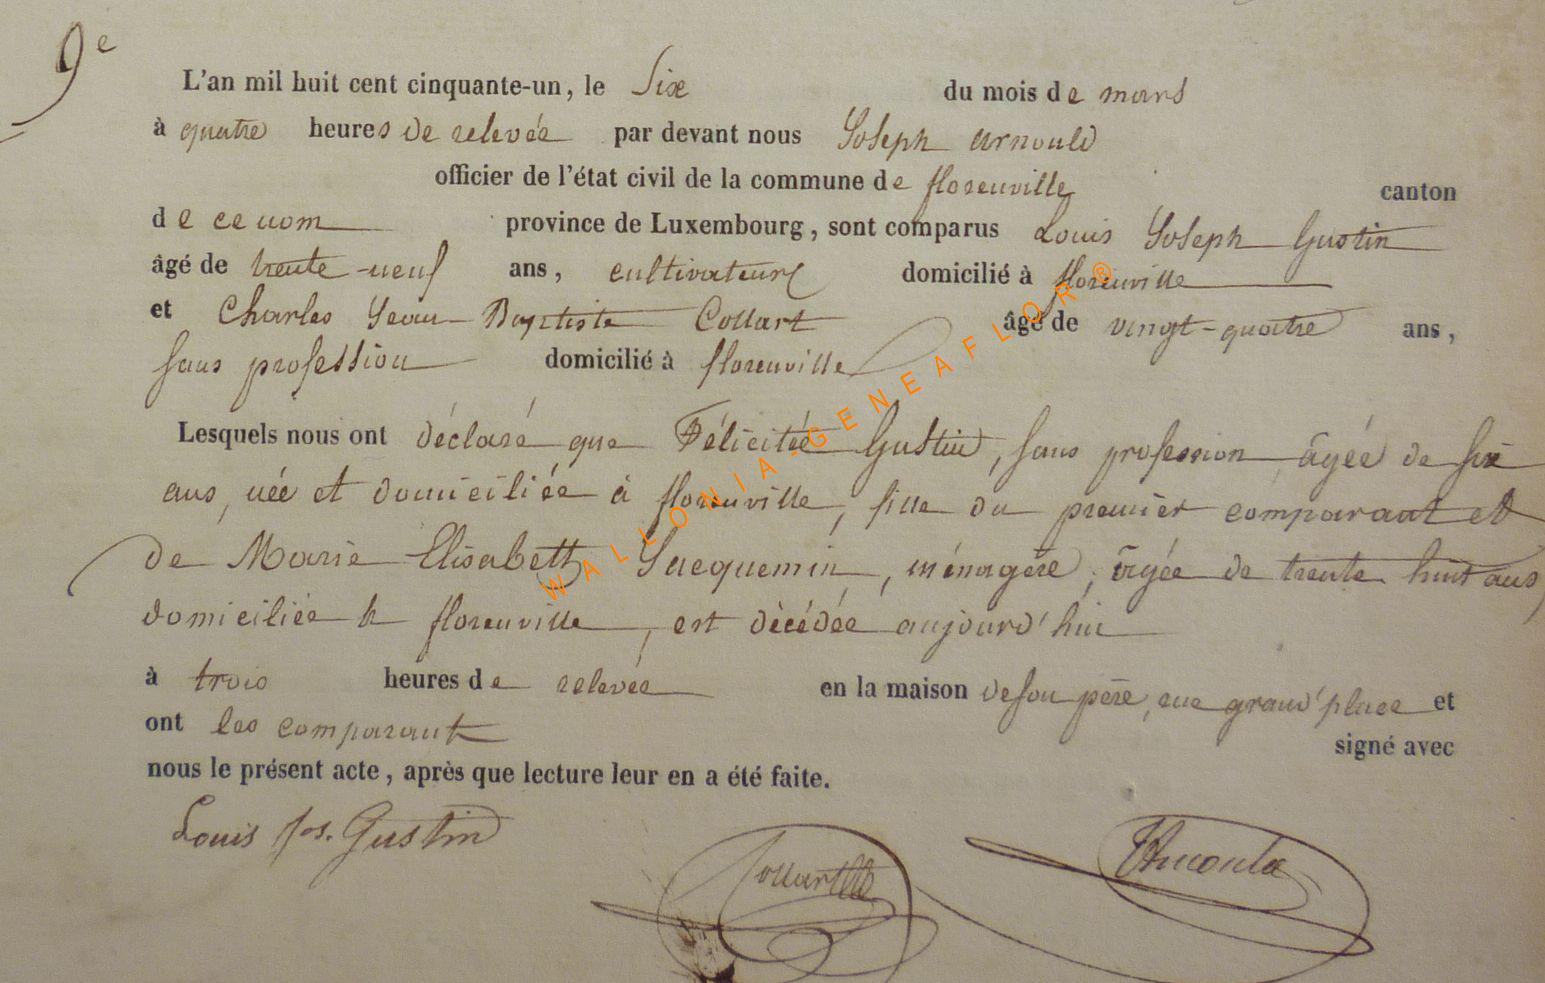 9e
L'an mil huit cent cinquante-un, le Six du mois de mars
à quatre heures de relevée par devant nous Joseph Arnould
officier de l'état civil de la commune de florenville canton
de ce nom province de Luxembourg, sont comparus Louis Joseph Gustin
âgé de trente-neuf ans, cultivateur domicilié à florenville
et Charles Jean Baptiste Collart âgé de vingt-quatre ans,
sans profession domicilié à florenville
Lesquels nous ont déclaré que Félicitée Gustin, sans profession âgée de six
ans, née et domiciliée à florenville, fille du premier comparant et
de Marie Elisabeth Jacquemin, ménagère, âgée de trente huit ans,
domiciliée à florenville, est décédée aujourd'hui
à trois heures de relevée en la maison de son père, rue grand'place et
ont les comparant signé avec
nous le présent acte, après que lecture leur en a été faite.
Louis Jos. Gustin Collart Arnould
WALLONIA-GENEAFLOR®